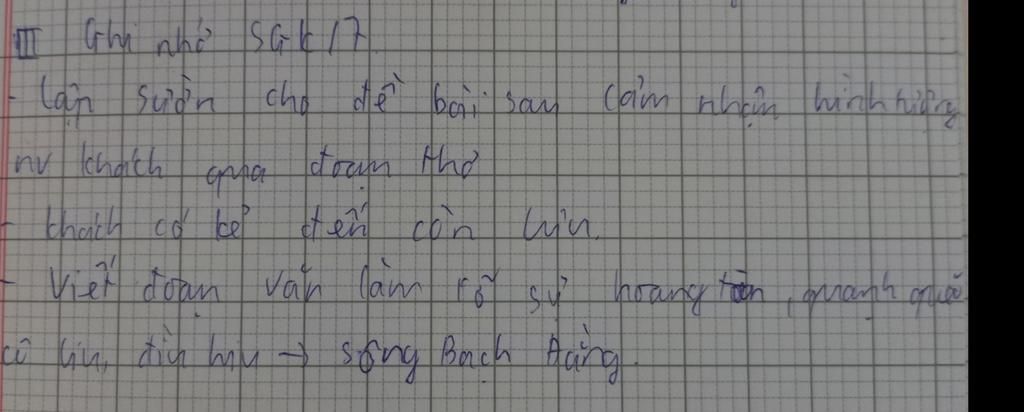 III Ghi nhớ SGK/7
- Lập sườn cho đề bài sau Cảm nhận hình tượng
nv khách qua đoạn thơ
- khách có kẻ đến còn lưu.
- Viết đoạn văn làm rõ sự hoang tàn, quạnh quẽ
cô liu, đìu hiu → sông Bạch Đằng.